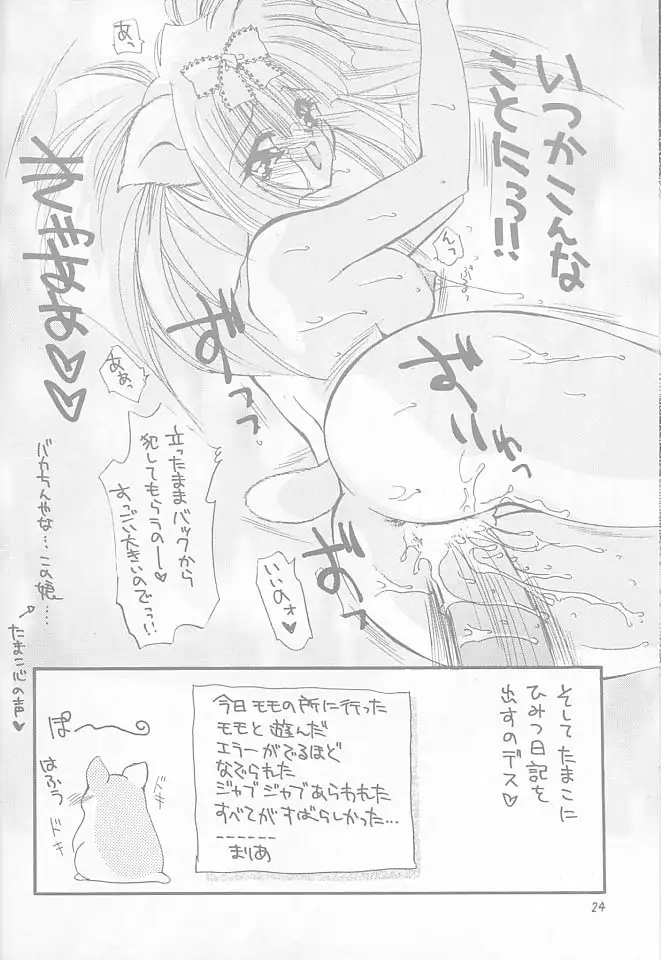 いつかこんな
ことにっ!!
れきまぁぁ♡♡
あっ
んっ
ぷるっ
ああっ
ずぉってっ
ずこわっ
ずぉっ
立ったままバックから
犯してもらうのー♡
すっごい大きいのでっ!!
いいのォ♡
バカちんやな…この娘…
たまこ心の声♡
そしてたまこに
ひみつ日記を
出すのデス♡
今日モモの所に行った
モモと遊んだ
エラーがでるほど
なでられた
ジャブジャブあらわれた
すべてがすばらしかった…
------
まりあ
ぽ〜
はふぅ
ドキ
ドキ
24